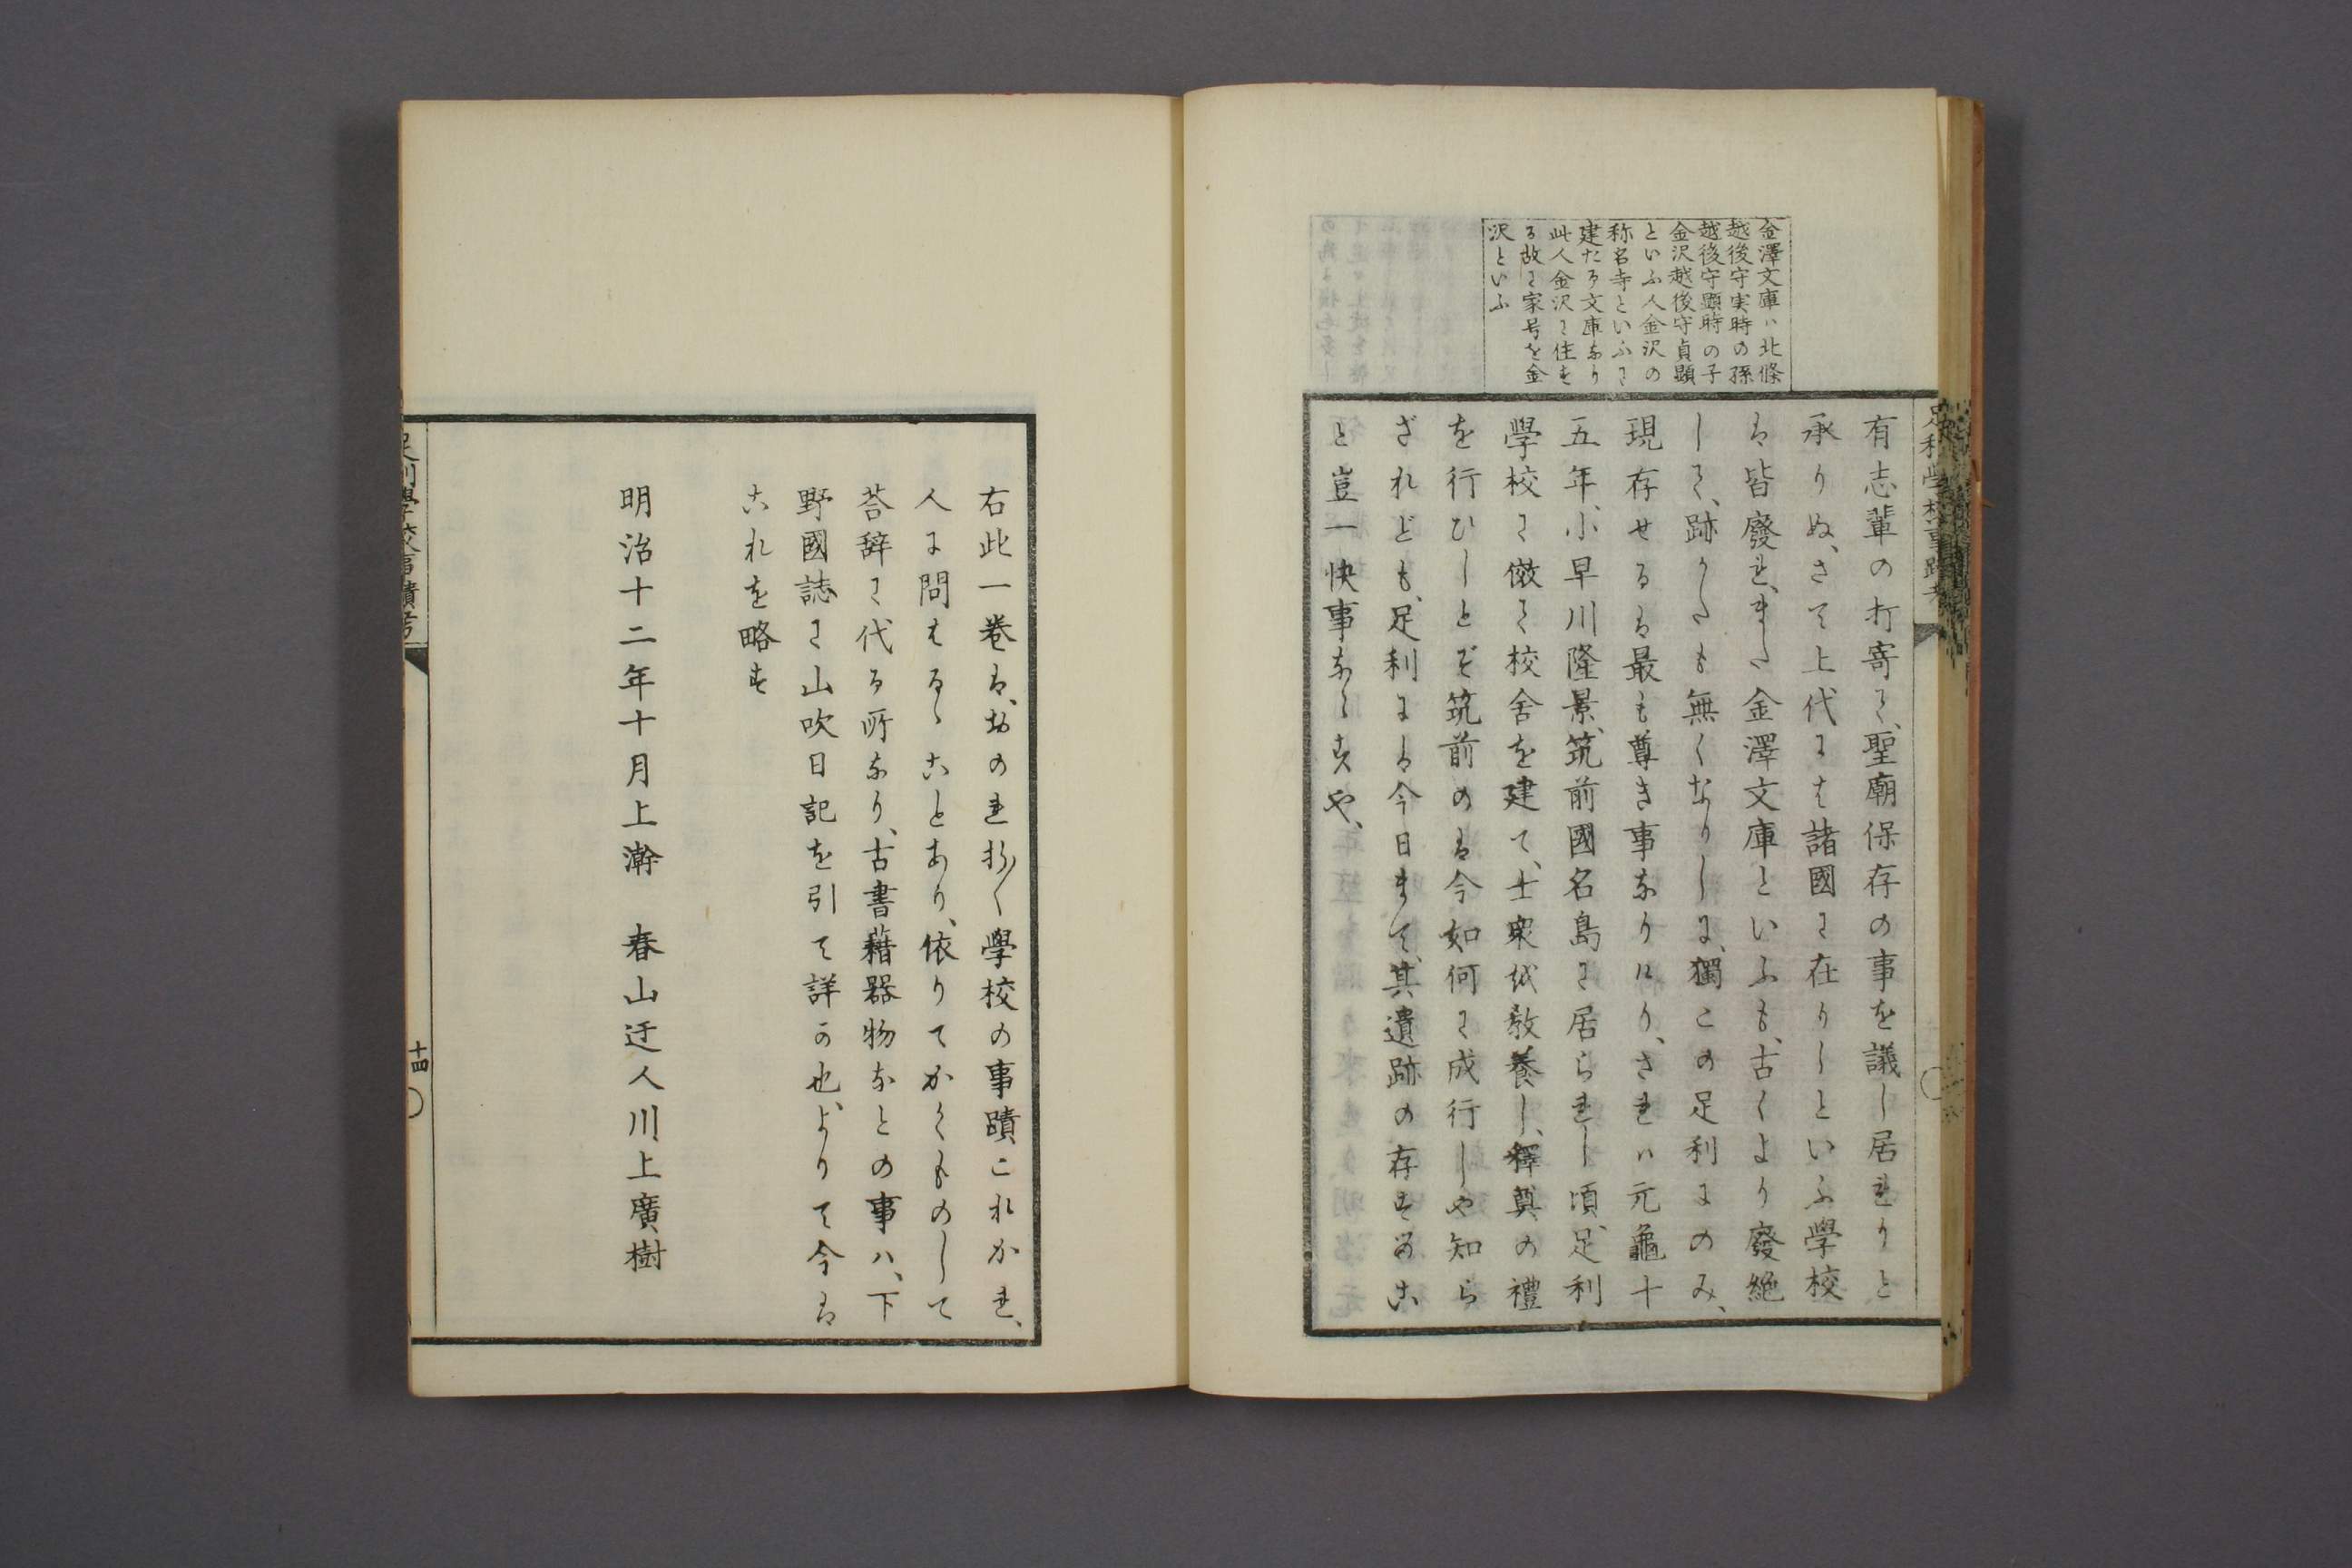 金澤文庫ハ北條
越後守実時の孫
越後守顕時の子
金沢越後守貞顕
といふ人金沢の
称名寺といふに
建たる文庫なり
此人金沢に住す
る故に家号を金
沢といふ
有志輩の打寄て、聖廟保存の事を議し居れりと
承りぬ、さて上代には諸國に在りしといふ學校
は皆廢れ、また金澤文庫といふも、古くより廢絶
して、跡かたも無くなりしに、獨この足利にのみ、
現存せるは最も尊き事なりけり、されハ元龜十
五年、小早川隆景、筑前國名島に居られし頃、足利
學校に倣て校舍を建て、士衆を教養し、釋奠の禮
を行ひしとぞ筑前のは今如何に成行しや知ら
ざれども、足利には今日まで、其遺跡の存するこ
と豈一快事ならずや、
足利學校事蹟考
右此一巻は、おのれ好く學校の事蹟これかれ、
人に問はるゝことあり、依りてかくものして
荅辞に代る所なり、古書藉器物なとの事ハ、下
野國誌に山吹日記を引て詳か也、よりて今は
これを略す
明治十二年十月上澣　春山迂人川上廣樹
足利學校事蹟考
十四